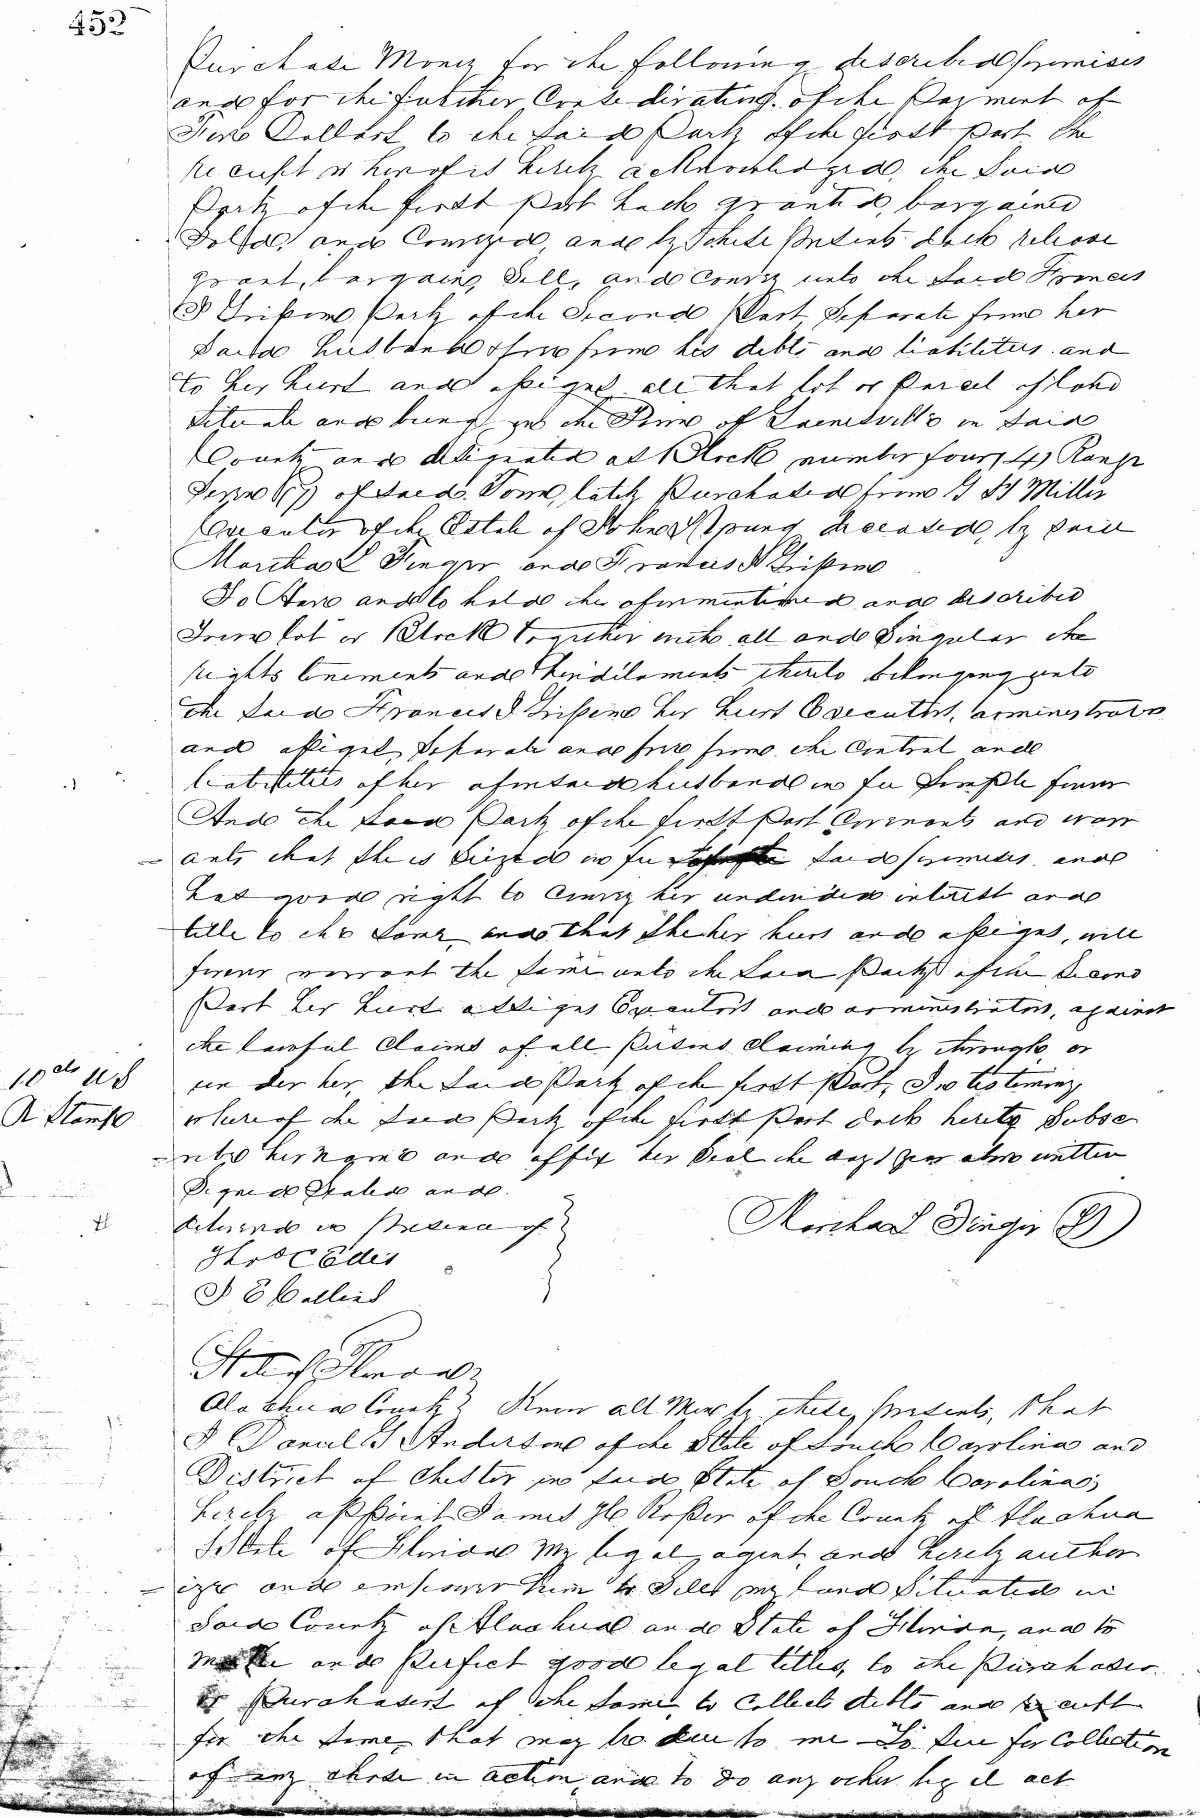 452
Purchase Money for the following described premises
and for the further Consideration of the Payment of
Five Dollars to the Said Party of the first part the
receipt whereof is hereby acknowledged, the Said
Party of the first Part hath granted, bargained
Sold, and Conveyed, and by these presents doth release
grant, bargain, Sell, and convey unto the Said Frances
J Grissom Party of the Second Part, Separate from her
Said husband & free from his debts and liabilities and
to her heirs and assigns all that lot or Parcel of land
Situate and being in the Town of Gainesville in Said
County and designated as Block number four (4) Range
of Said Town, lately Purchased from G H Miller
Executor of the Estate of John Young deceased, by Said
Martha L Finger and Frances J Grissom
To Have and to hold the aforementioned and described
Town lot or Block together with all and Singular the
rights tenements and hereditaments thereto belonging unto
the Said Frances J Grissom her heirs Executors, administrators
and assigns, Separate and free from the control and
liabilities of her aforesaid husband in fee Simple forever
And the Said Party of the first Part Covenants and warr
ants that She is Seized in fee Said premises and
has good right to convey her undivided interest and
title to the Same, and that She her heirs and assigns, will
forever warrant the Same unto the Said Party of the Second
Part her heirs assigns Executors and administrators, against
the lawful Claims of all Persons claiming by through, or
10 cts U S
R Stamp
under her, the Said Party of the first Part, In testimony
whereof the Said Party of the first Part doth hereto Subsc
ribe her name and affix her Seal the day & year above written
Signed Sealed and
delivered in presence of
Martha L Finger
Thos C Ellis
J E Collins
State of Florida
Alachua County Know all Men by these presents, that
I Daniel G Anderson of the State of South Carolina and
District of Chester in Said State of South Carolina,
hereby appoint James H Roper of the County of Alachua
& State of Florida My legal agent, and hereby author
ize and empower him to Sell my land Situated in
Said County of Alachua and State of Florida, and to
make and perfect good legal titles, to the Purchaser
or Purchasers of the Same, to Collect debts and receipt
for the Same, that may be due to me To Sue for Collection
of any chose in action, and to do any other legal act